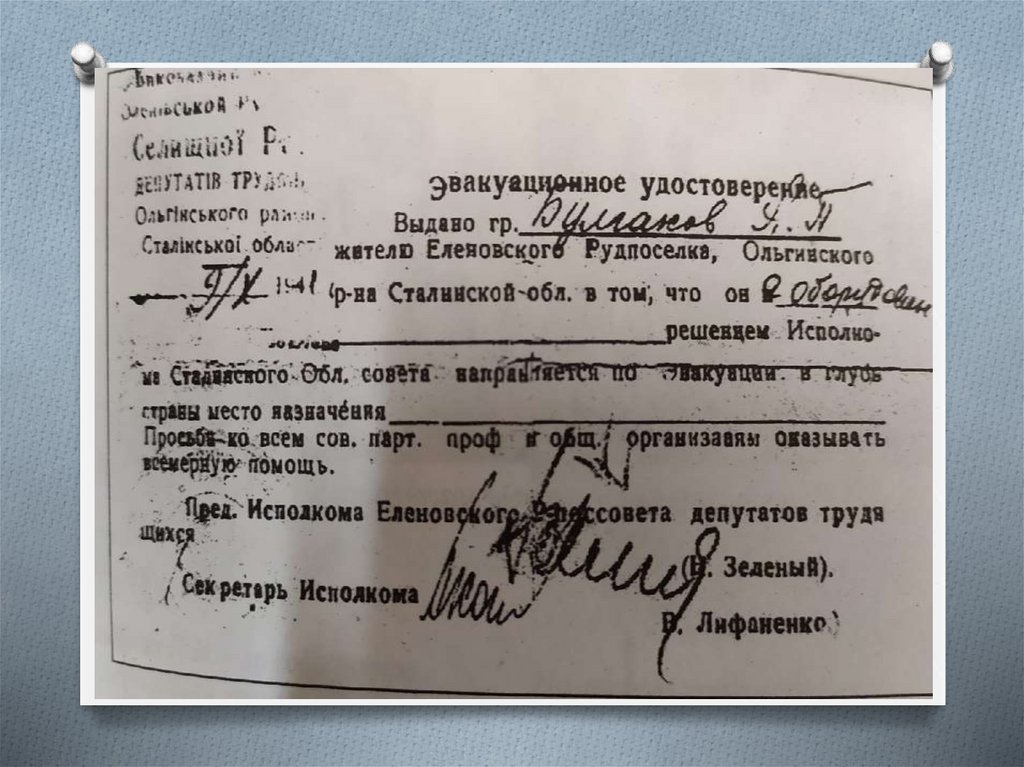 Селищної
ДЕПУТАТІВ
Ольгінського
Сталінської
9/X 1941
Эвакуационное удостоверение
Выдано гр. Булгаков Я. А
жителю Еленовского Рудпоселка, Ольгинского
р-на Сталинской обл. в том, что он
решением Исполко-
ма Сталинского Обл. совета направляется по эвакуации в глубь
страны место назначения
Просьба ко всем сов. парт. проф и общ. организавям оказывать
всемерную помощь.
Пред. Исполкома Еленовского депутатов трудя
щихся
Зеленый).
Секретарь Исполкома
В. Лифаненко)